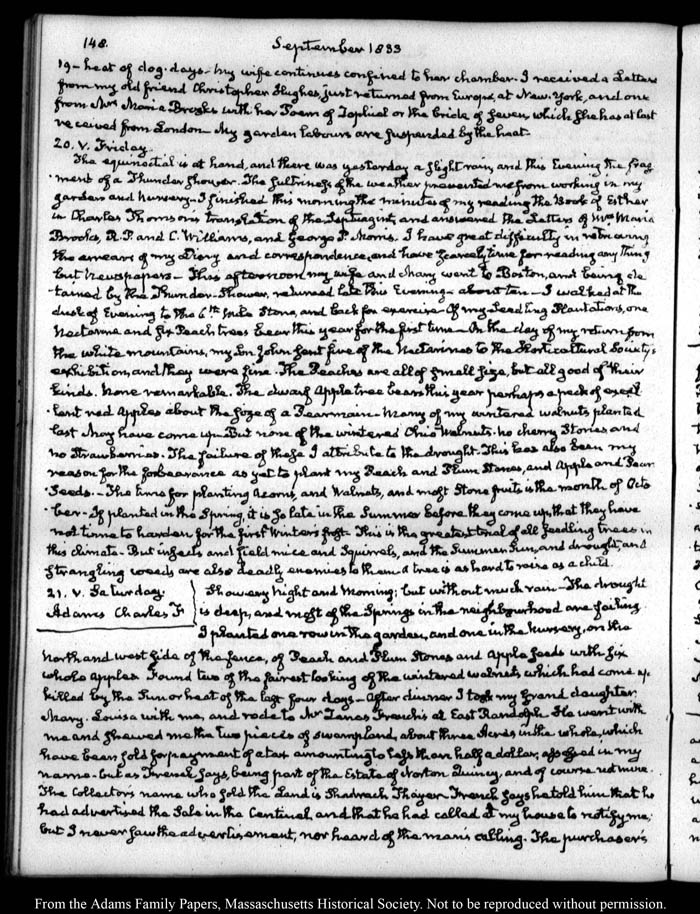 148.
September 1833
19 - heat of dog-days - My wife continues confined to her chamber. I received a Letters
from my old friend Christopher Hughes, just returned from Europe, at New-York, and one
from Mrs Maria Brooks with her Poem of Zophiel or the bride of Seven, which she has at last
received from London. My garden labours are suspended by the heat.
20. V. Friday.
The equinoctial is at hand, and there was yesterday a slight rain, and this Evening the frag
ment of a Thunder shower. The sultriness of the weather prevented me from working in my
garden and nursery - I finished this morning the minutes of my reading the Book of Esther
in Charles Thomson's translation of the Septuagint, and answered the Letters of Mrs Maria
Brooks, R. P. and C. Williams, and George P. Morris. I have great difficulty in retrieving
the arrears of my Diary and correspondence, and have scarcely time for reading any thing
but Newspapers - This afternoon my wife and Mary went to Boston, and being de
tained by the Thunder-Shower, returned late this Evening - about ten - I walked at the
dusk of Evening to the 6th Mile Stone, and back for exercise - Of my Seedling Plantations, one
Nectarine and six Peach trees bear this year for the first time - On the day of my return from
the white mountains, my Son John sent five of the Nectarines to the Horticultural Society's
exhibition, and they were fine. The Peaches are all of small size, but all good of their
kinds. None remarkable. The dwarf Apple tree bears this year perhaps a peck of excel
lent red Apples about the size of a Pearmain - Many of my wintered walnuts planted
last May have come up - But none of the wintered Ohio Walnuts. no cherry Stones and
no Strawberries. The failure of these I attribute to the drought. This has also been my
reason for the forbearance as yet to plant my Peach and Plum Stones, and Apple and Pear
Seeds. - The time for planting Acorns, and Walnuts, and most Stone fruits is the month of Octo
ber - If planted in the Spring, it is so late in the Summer before they come up, that they have
not time to harden for the first Winters frost - This is the greatest trial of all seedling trees in
this climate - But insects and field mice and Squirrels, and the Summer Sun, and drought, and
strangling weeds are also deadly enemies to them - A tree is as hard to raise as a child.
21. V. Saturday.
Adams Charles F
Showery Night and Morning; but without much rain - The drought
is deep, and most of the Springs in the neighbourhood are failing.
I planted one row in the garden, and one in the nursery, on the
north and west side of the fence, of Peach and Plum Stones and Apple seeds with six
whole apples. Found two of the fairest looking of the wintered walnuts which had come up
killed by the Sun or heat of the last four days - After dinner I took my Grand daughter
Mary-Louisa with me, and rode to Mr Zenas French's at East Randolph. He went with
me and shewed me the two pieces of swampland, about three Acres in the whole, which
have been sold for payment of a tax amounting to less than half a dollar, assessed in my
name - but as French says, being part of the Estate of Norton Quincy, and of course not mine.
The Collector's name who sold the Land is Shadrach Thayer. French says he told him that he
had advertised the Sale in the Centinel, and that he had called at my house to notify me;
but I never saw the advertisement, nor heard of the man's calling. The purchaser's
From the Adams Family Papers, Massachusetts Historical Society. Not to be reproduced without permission.